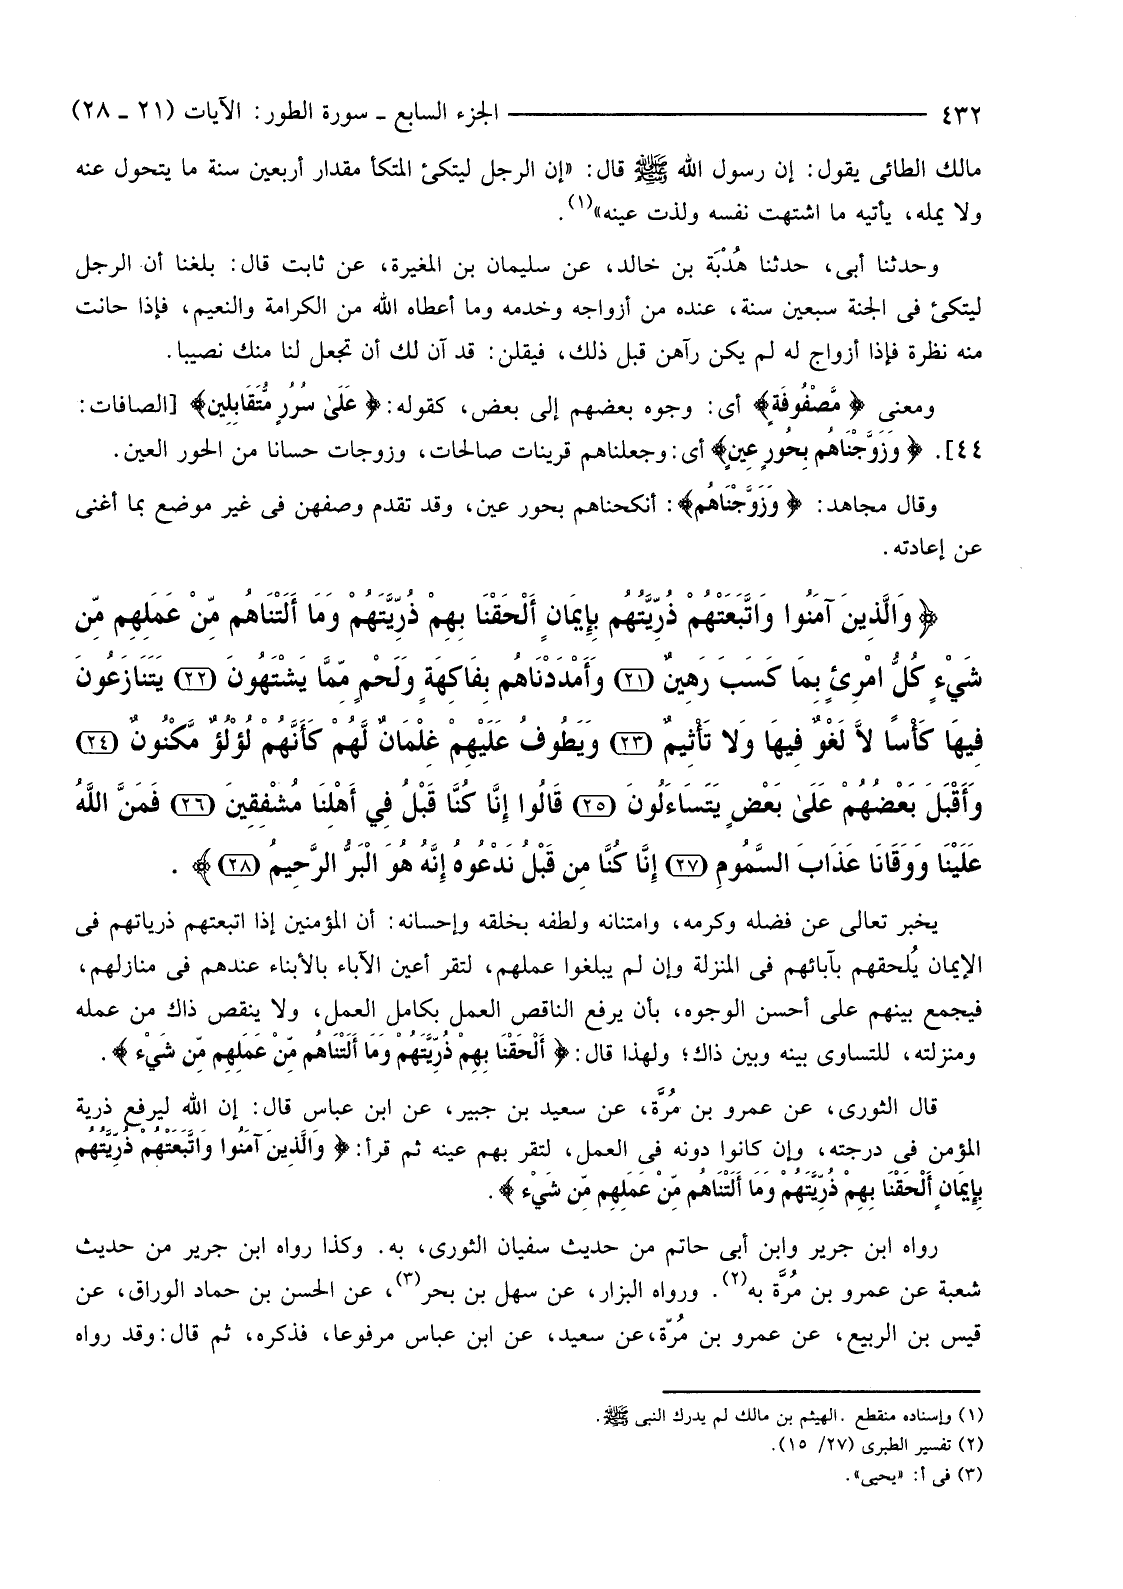 ٤٣٢ ـــــــ الجزء السابع ـ سورة الطور: الآيات (٢١ ـ ٢٨)
مالك الطائى يقول: إن رسول الله ﷺ قال: «إن الرجل ليتكئ المتكأ مقدار أربعين سنة ما يتحول عنه
ولا يمله، يأتيه ما اشتهت نفسه ولذت عينه»(١).
وحدثنا أبى، حدثنا هُدْبَة بن خالد، عن سليمان بن المغيرة، عن ثابت قال: بلغنا أن الرجل
ليتكئ فى الجنة سبعين سنة، عنده من أزواجه وخدمه وما أعطاه الله من الكرامة والنعيم، فإذا حانت
منه نظرة فإذا أزواج له لم يكن رآهن قبل ذلك، فيقلن: قد آن لك أن تجعل لنا منك نصيبا.
ومعنى ﴿ مَّصْفُوفَةٍ﴾ أى: وجوه بعضهم إلى بعض، كقوله: ﴿ عَلَىٰ سُرُرٍ مُّتَقَابِلِين﴾ [الصافات:
٤٤]. ﴿ وَزَوَّجْنَاهُم بِحُورٍ عِين﴾ أى: وجعلناهم قرينات صالحات، وزوجات حسانا من الحور العين.
وقال مجاهد: ﴿ وَزَوَّجْنَاهُم﴾: أنكحناهم بحور عين، وقد تقدم وصفهن فى غير موضع بما أغنى
عن إعادته.
﴿ وَالَّذِينَ آمَنُوا وَاتَّبَعَتْهُمْ ذُرِّيَّتُهُم بِإِيمَانٍ أَلْحَقْنَا بِهِمْ ذُرِّيَّتَهُمْ وَمَا أَلَتْنَاهُم مِّنْ عَمَلِهِم مِّن
شَيْءٍ كُلُّ امْرِئٍ بِمَا كَسَبَ رَهِينٌ (٢١) وَأَمْدَدْنَاهُم بِفَاكِهَةٍ وَلَحْمٍ مِّمَّا يَشْتَهُونَ (٢٢) يَتَنَازَعُونَ
فِيهَا كَأْسًا لاَّ لَغْوٌ فِيهَا وَلا تَأْثِيمٌ (٢٣) وَيَطُوفُ عَلَيْهِمْ غِلْمَانٌ لَّهُمْ كَأَنَّهُمْ لُؤْلُؤٌ مَّكْنُونٌ (٢٤)
وَأَقْبَلَ بَعْضُهُمْ عَلَىٰ بَعْضٍ يَتَسَاءَلُونَ (٢٥) قَالُوا إِنَّا كُنَّا قَبْلُ فِي أَهْلِنَا مُشْفِقِينَ (٢٦) فَمَنَّ اللَّهُ
عَلَيْنَا وَوَقَانَا عَذَابَ السَّمُومِ (٢٧) إِنَّا كُنَّا مِن قَبْلُ نَدْعُوهُ إِنَّهُ هُوَ الْبَرُّ الرَّحِيمُ (٢٨) ﴾ .
يخبر تعالى عن فضله وكرمه، وامتنانه ولطفه بخلقه وإحسانه: أن المؤمنين إذا اتبعتهم ذرياتهم فى
الإيمان يُلحقهم بآبائهم فى المنزلة وإن لم يبلغوا عملهم، لتقر أعين الآباء بالأبناء عندهم فى منازلهم،
فيجمع بينهم على أحسن الوجوه، بأن يرفع الناقص العمل بكامل العمل، ولا ينقص ذاك من عمله
ومنزلته، للتساوى بينه وبين ذاك؛ ولهذا قال: ﴿ أَلْحَقْنَا بِهِمْ ذُرِّيَّتَهُمْ وَمَا أَلَتْنَاهُم مِّنْ عَمَلِهِم مِّن شَيْء ﴾.
قال الثورى، عن عمرو بن مُرَّة، عن سعيد بن جبير، عن ابن عباس قال: إن الله ليرفع ذرية
المؤمن فى درجته، وإن كانوا دونه فى العمل، لتقر بهم عينه ثم قرأ: ﴿ وَالَّذِينَ آمَنُوا وَاتَّبَعَتْهُمْ ذُرِّيَّتُهُم
بِإِيمَانٍ أَلْحَقْنَا بِهِمْ ذُرِّيَّتَهُمْ وَمَا أَلَتْنَاهُم مِّنْ عَمَلِهِم مِّن شَيْء ﴾.
رواه ابن جرير وابن أبى حاتم من حديث سفيان الثورى، به. وكذا رواه ابن جرير من حديث
شعبة عن عمرو بن مُرَّة به(٢). ورواه البزار، عن سهل بن بحر(٣)، عن الحسن بن حماد الوراق، عن
قيس بن الربيع، عن عمرو بن مُرّة، عن سعيد، عن ابن عباس مرفوعا، فذكره، ثم قال: وقد رواه
(١) وإسناده منقطع .الهيثم بن مالك لم يدرك النبى ﷺ.
(٢) تفسير الطبرى (٢٧/ ١٥).
(٣) فى أ: «يحيى».